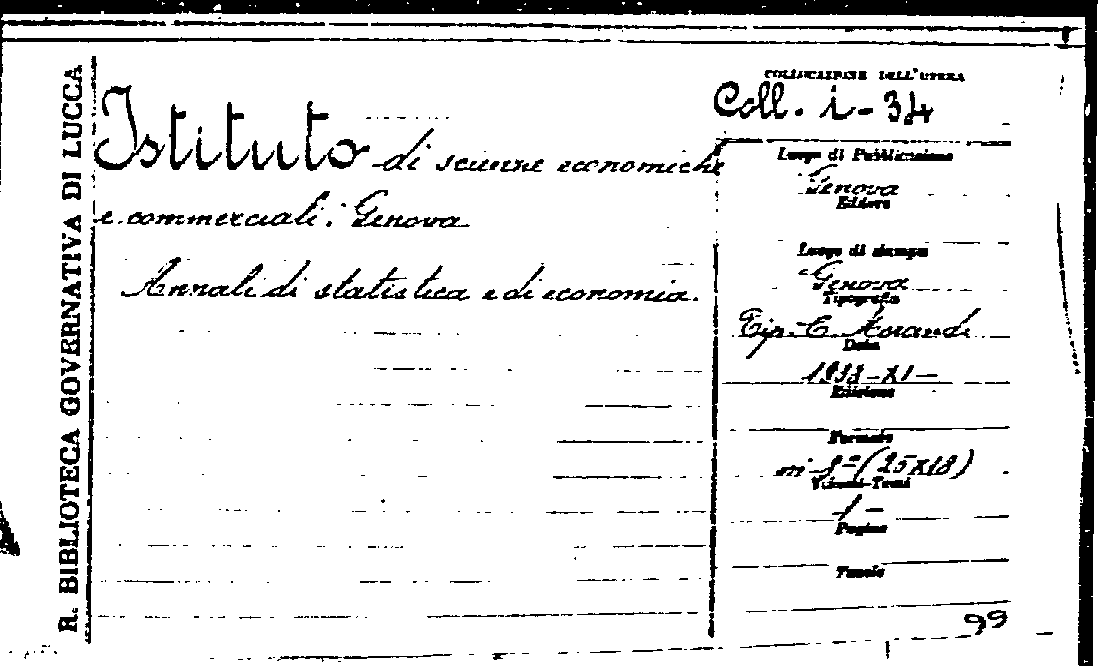 R. BIBLIOTECA GOVERNATIVA DI LUCCA
Istituto di scienze economiche
e commerciali: Genova
Annali di statistica e di economia.
COLLOCAZIONE DELL'OPERA
Coll. i-34
Luogo di Pubblicazione
Genova
Editore
Luogo di stampa
Genova
Tipografia
Tip. E.
Data
1933-XI-
Edizione
Formato
in 8º (25x18)
Volumi-Tomi
1-
Pagine
Tavole
99